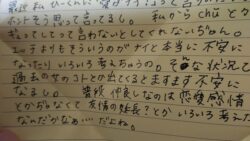 ホントそう思って言ってる。私から chū とか
ぎゅってしてって言わないとしてくれないじゃん。
エッチよりもそういうのがナイと本当に不安に
なったり いろいろ考えちゃうの。そんな状況で
過去のサのコトとか出てくるとますます不安に
なるし。普段仲良しなのは恋愛感情
とかぢゃなくて友情の延長？とか いろいろ考えた
なんだかなぁ…だよね。